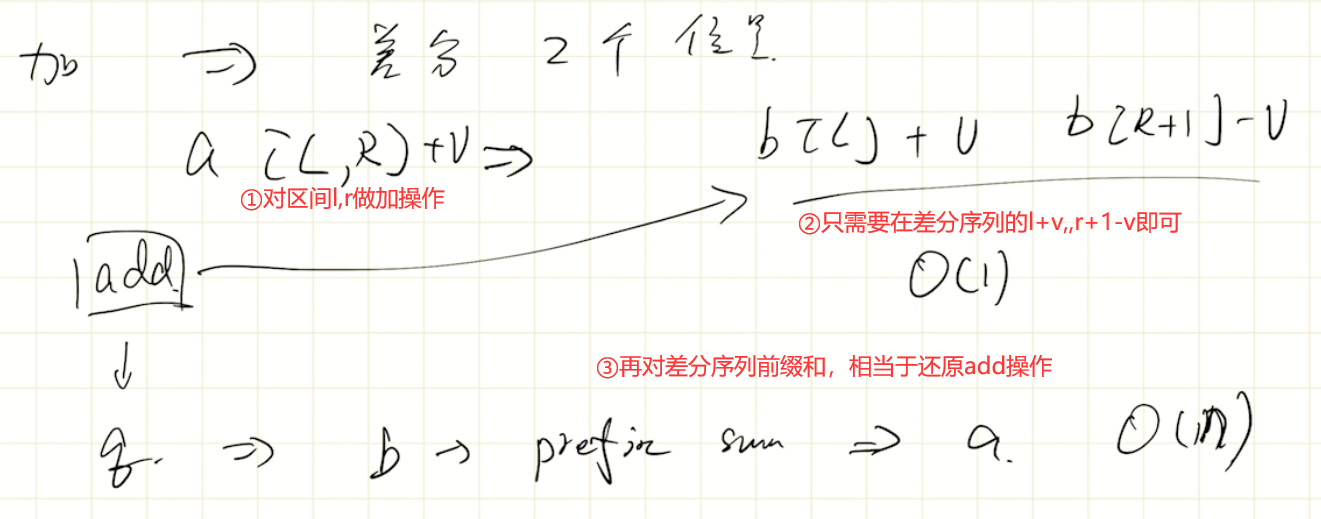 加 ⇒ 差分 2个位置.
a [L,R]+V ⇒ b[L]+V b[R+1]-V
①对区间l,r做加操作
②只需要在差分序列的l+v,,r+1-v即可
add
O(1)
③再对差分序列前缀和，相当于还原add操作
q. ⇒ b → prefix sum ⇒ a. O(n)